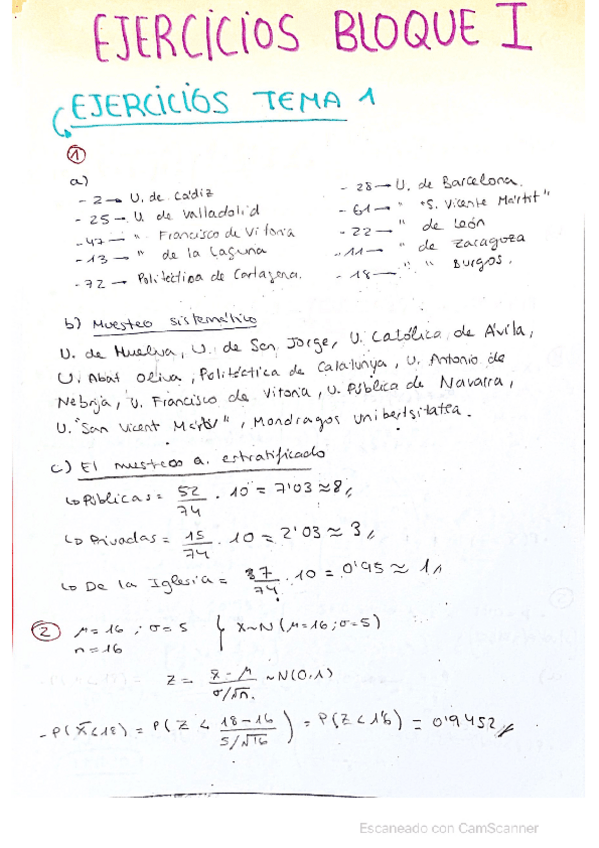 EJERCICIOS BLOQUE I
EJERCICIOS TEMA 1
1
a)
- 2 → U. de Cádiz
- 25 → U. de Valladolid
- 47 → " Francisco de Vitoria
- 13 → " de la Laguna
- 72 → Politéctica de Cartagena.
- 28 → U. de Barcelona.
- 61 → " "S. Vicente Mártit"
- 22 → " de León
- 11 → " de Zaragoza
- 18 → " " Burgos.
b) Muesteo sistemático
U. de Huelva, U. de San Jorge, U. Católica de Ávila,
U. Abat Oliva, Politéctica de Catalunya, U. Antonio de
Nebrija, U. Francisco de Vitoria, U. Pública de Navarra,
U. "San Vicent Mártir", Mondragos Unibertsitatea.
c) El muesteo a. estratificado
↳ Públicas = 52/74 · 10 = 7'03 ≈ 8
↳ Privadas = 15/74 · 10 = 2'03 ≈ 3
↳ De la Iglesia = 37/74 · 10 = 0'95 ≈ 1
2 μ = 16 ; σ = 5 } X~N(μ=16; σ=5)
n = 16
Z = x̄ - μ / σ/√n. ~N(0,1)
- P(X̄<18) = P(Z < 18-16 / 5/√16) = P(Z<1'6) = 0'9452
Escaneado con CamScanner